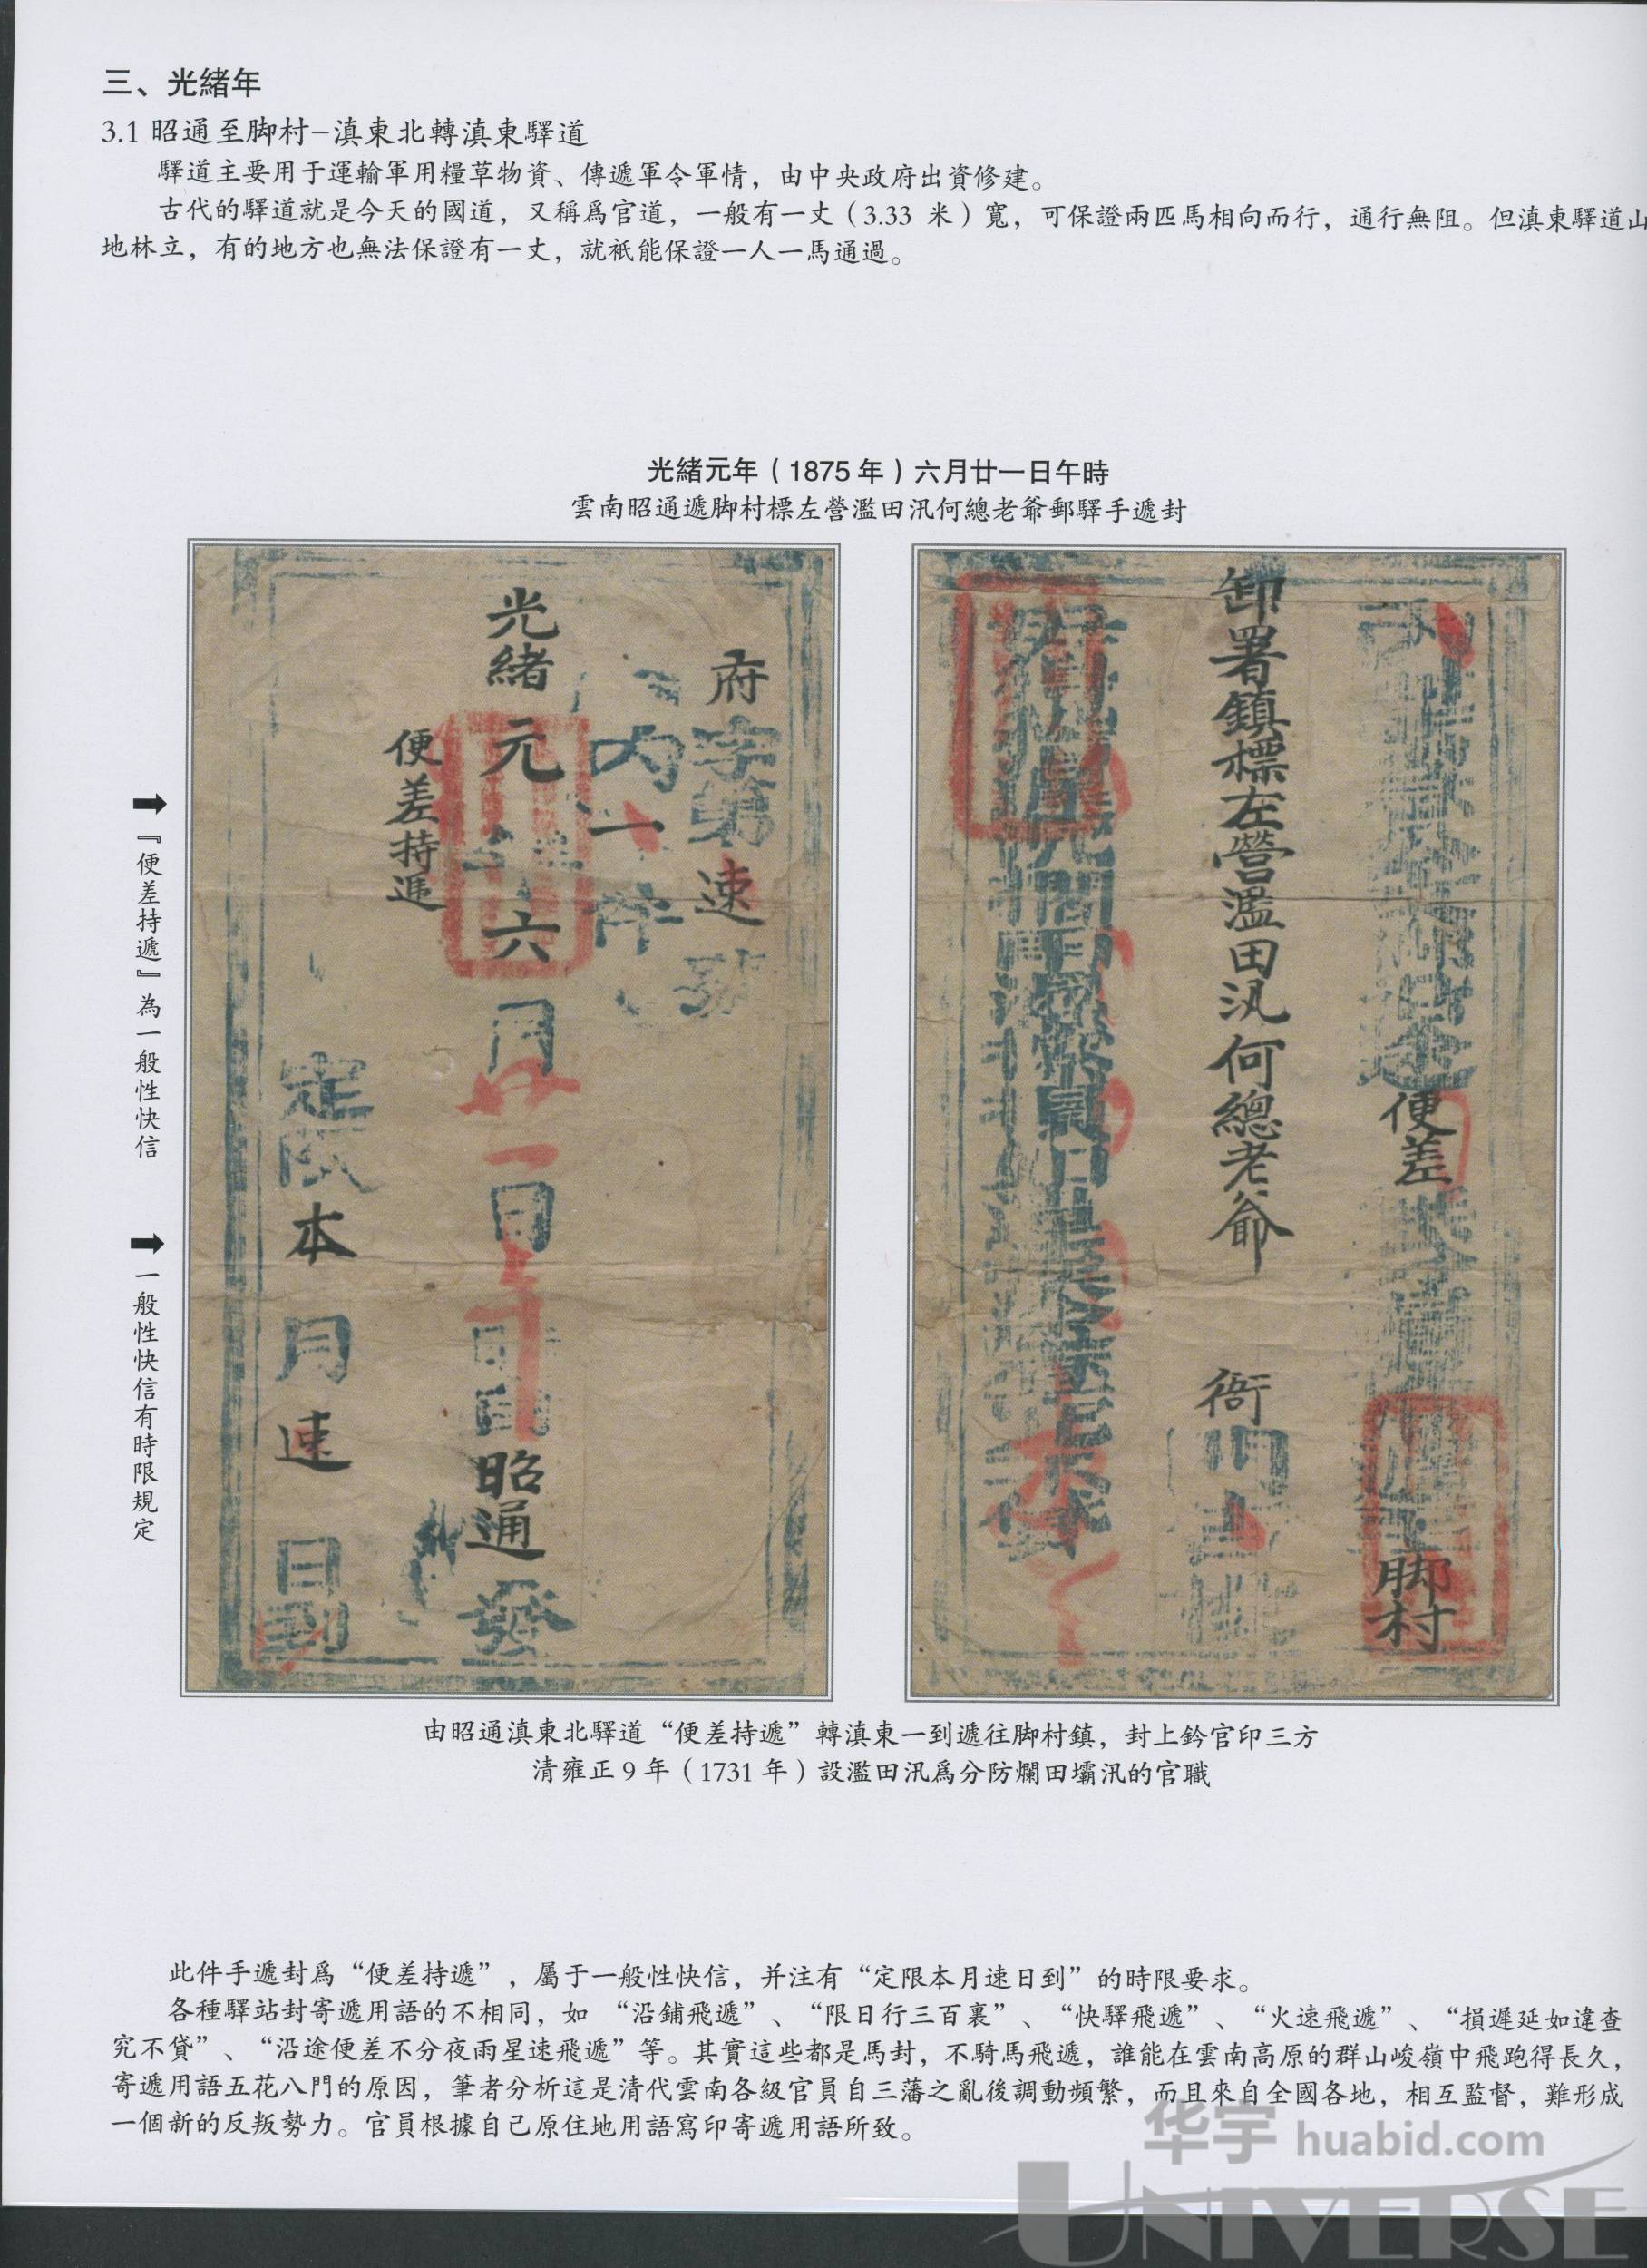 三、光緒年
3.1 昭通至脚村–滇東北轉滇東驛道
驛道主要用于運輸軍用糧草物資、傳遞軍令軍情，由中央政府出資修建。
古代的驛道就是今天的國道，又稱爲官道，一般有一丈（3.33 米）寬，可保證兩匹馬相向而行，通行無阻。但滇東驛道山
地林立，有的地方也無法保證有一丈，就衹能保證一人一馬通過。
光緒元年（1875年）六月廿一日午時
雲南昭通遞脚村標左營濫田汛何總老爺郵驛手遞封
府字第速號
內一件
光緒元年六月廿一日午時昭通發
便差持遞
定限本月速日到
便差
脚村
卸署鎮標左營濫田汛何總老爺
衙
➡『便差持遞』為一般性快信
➡一般性快信有時限規定
由昭通滇東北驛道“便差持遞”轉滇東一到遞往脚村鎮，封上鈐官印三方
清雍正9年（1731年）設濫田汛爲分防爛田壩汛的官職
此件手遞封爲“便差持遞”，屬于一般性快信，并注有“定限本月速日到”的時限要求。
各種驛站封寄遞用語的不相同，如 “沿鋪飛遞”、“限日行三百裏”、“快驛飛遞”、“火速飛遞”、“損遲延如違查
究不貸”、“沿途便差不分夜雨星速飛遞”等。其實這些都是馬封，不騎馬飛遞，誰能在雲南高原的群山峻嶺中飛跑得長久，
寄遞用語五花八門的原因，筆者分析這是清代雲南各級官員自三藩之亂後調動頻繁，而且來自全國各地，相互監督，難形成
一個新的反叛勢力。官員根據自己原住地用語寫印寄遞用語所致。
华宇 huabid.com
UNIVERSE